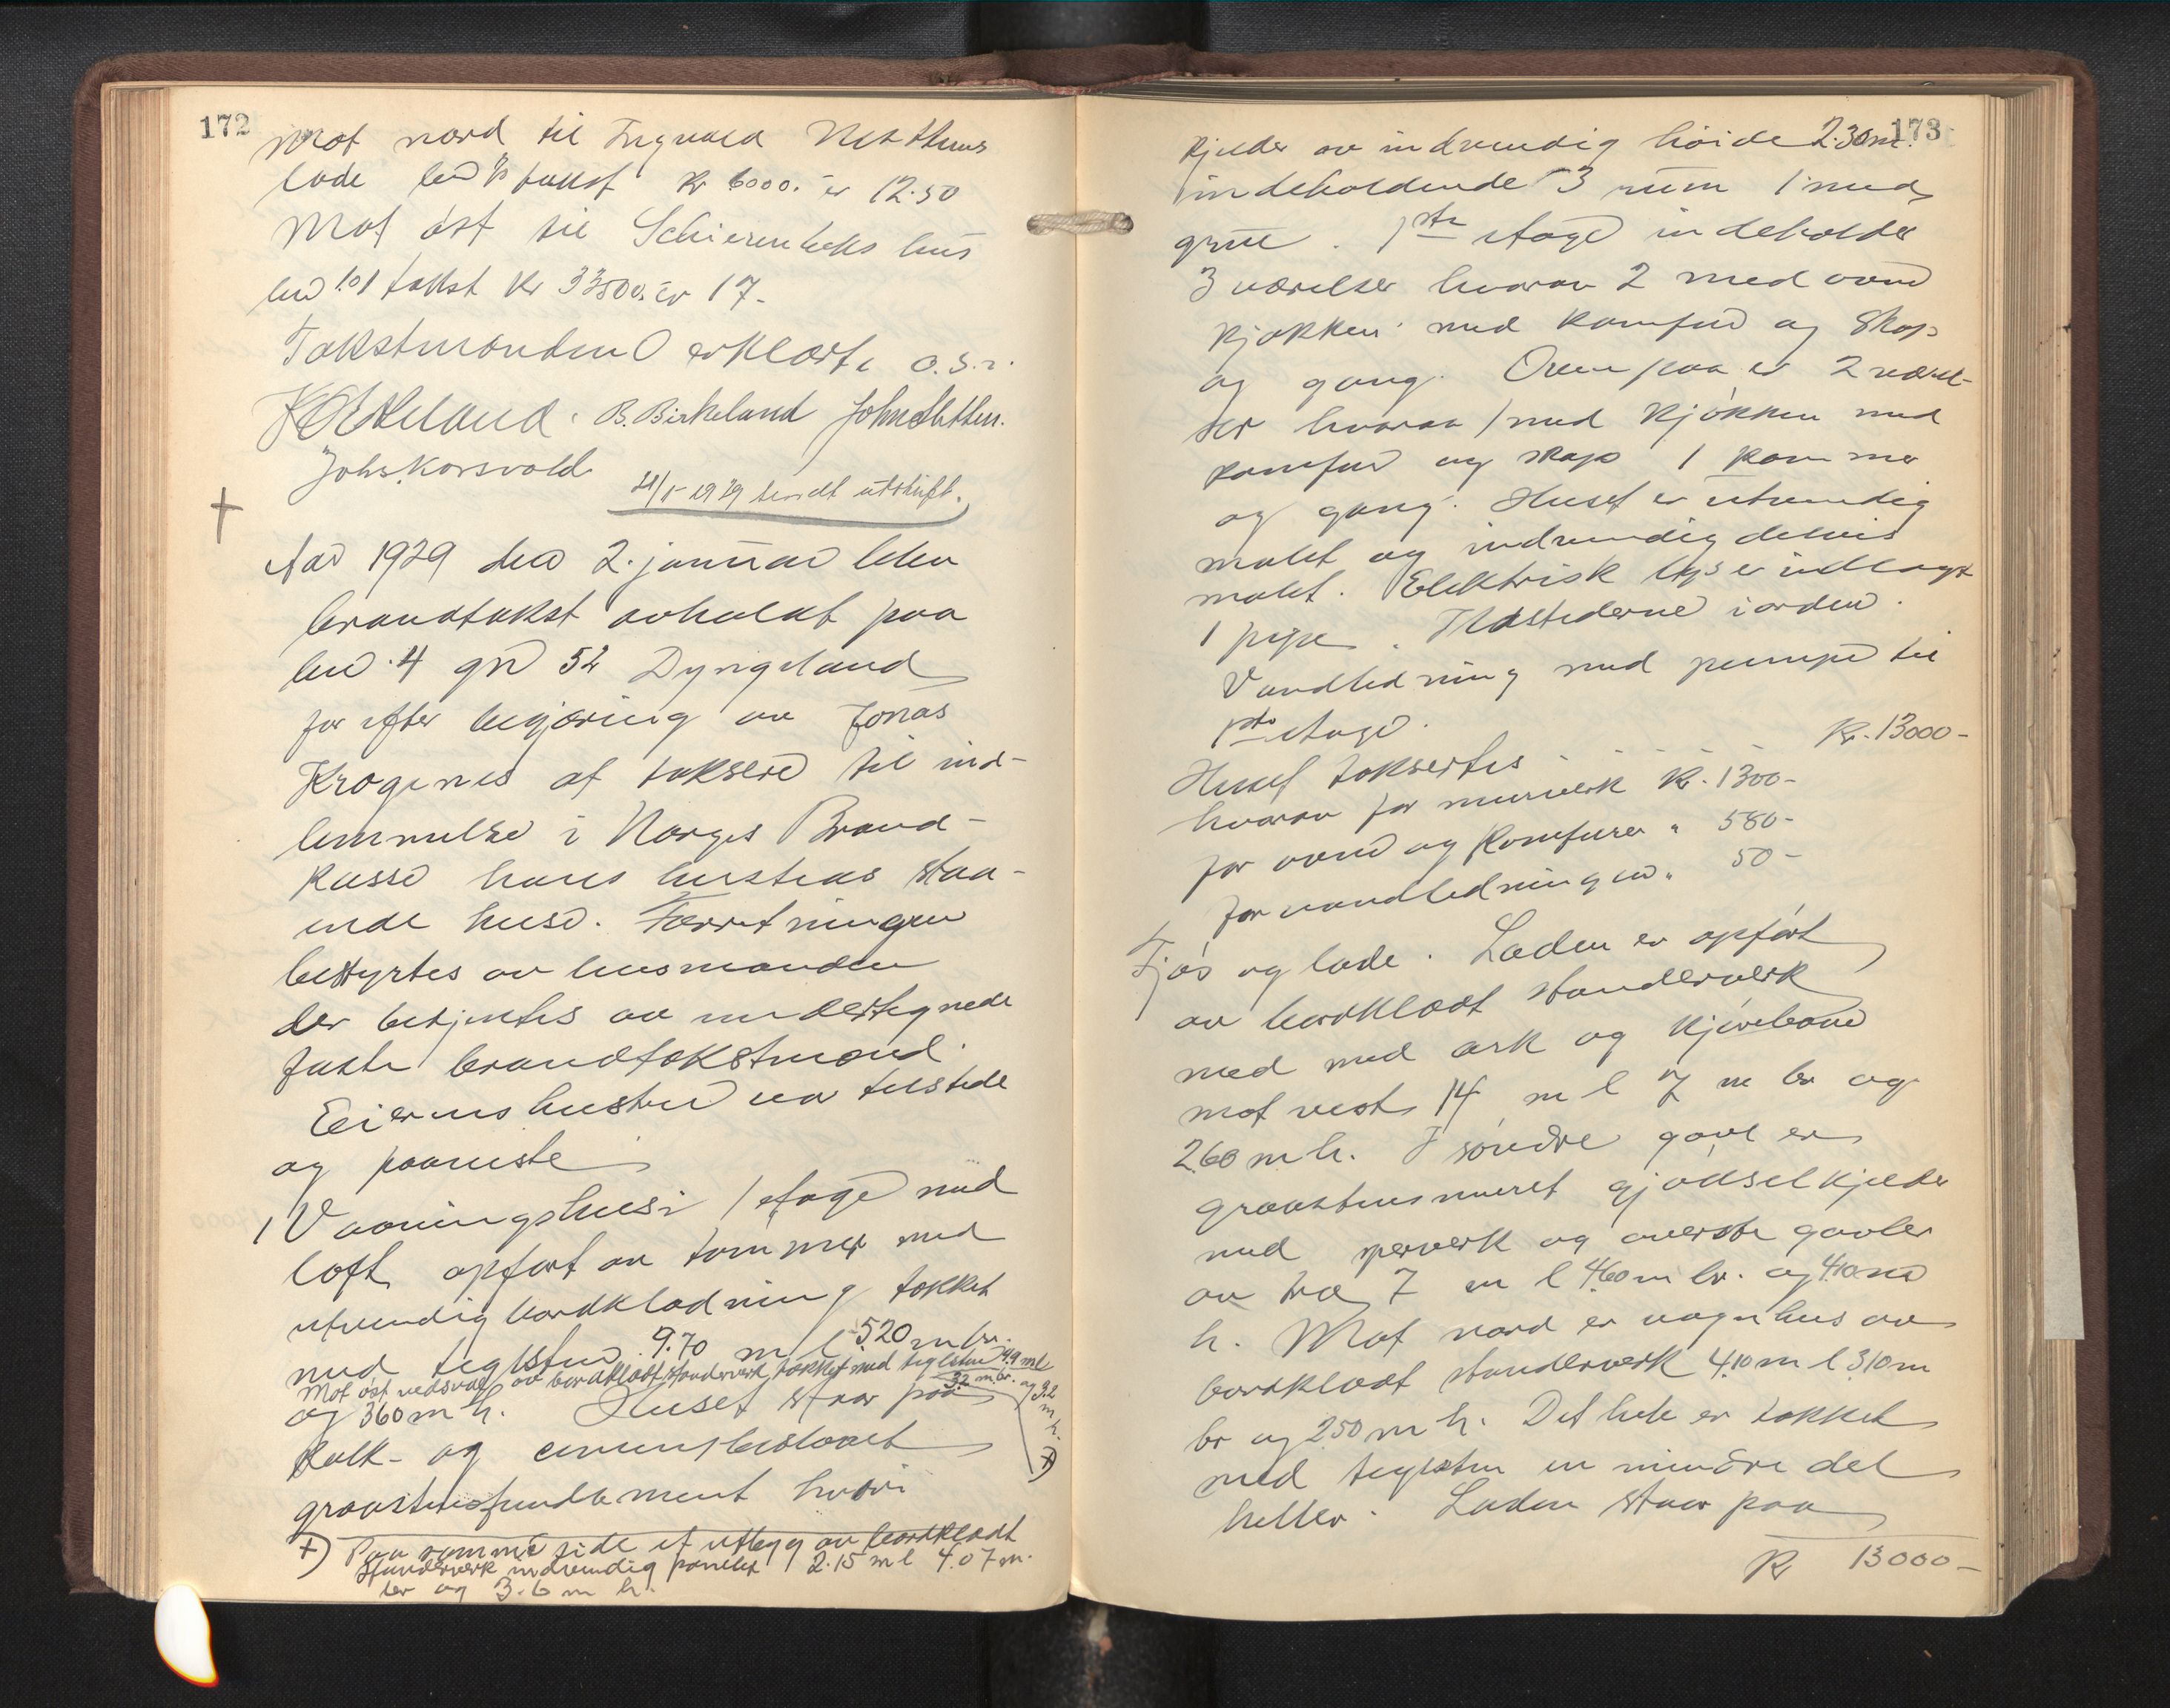 172
Mot nord til Ingvald Nesttuns
lade takst Kr 6000.- er 12.50
Mot øst til Schierenbeks hus
takst Kr 33500.- er 17.-
Takstmænden erklærte o.s.v.
B. Birkeland John Sletten.
Johs. Korsvold
1929 sendt utskrift.
Aar 1929 den 2. januar blev
brandtakst avholdt paa
bno 4 gno 52 Dyngeland
for efter begjæring av Jonas
Krogenes at taksere til ind-
lemmelse i Norges Brand-
kasse hans hustrus staa-
ende huse. Forretningen
bestyrtes av lensmanden
der betjentes av undertegnede
faste brandtakstmænd.
Eierens hustru var tilstede
og paaviste
1 Vaaningshus i 1 etage med
loft opført av tømmer med
utvendig bordklædning tækket
med teglsten 9.70 m l 5.20 m br.
Mot øst vedsval av bordklædt standerverk tækket med teglsten 4.9 m l
3.2 m br. og 3.2 m h. +)
og 3.60 m h. Huset staar paa
kalk- og cementpusset
graastensfundament hvori
+) Paa samme side et utbygg av bordklædt
standerverk indvendig panelet 2.15 m l 4.07 m.
br og 3.6 m h.
173
kjelder av indvendig høide 2.30 m.
indeholdende 3 rum 1 med
grue. 1ste etage indeholder
3 værelser hvorav 2 med ovne
kjøkken med komfur og skap
og gang. Ovenpaa er 2 værel-
ser hvorav 1 med kjøkken med
komfur og skap 1 kammer
og gang. Huset er utvendig
malet og indvendig delvis
malet. Elektrisk lys er indlagt
1 pipe. Ildstederne i orden.
Vandledning med pumpe til
1ste etage.
Huset takseres - - - - - Kr. 13000-
hvorav for murverk Kr. 1300-
for ovne og komfurer " 580-
for vandledningen " 50-
Fjøs og lade. Laden er opført
av bordklædt standerverk
med med ark og kjørebane
mot vest 14 m l 7 m br og
2.60 m h. I søndre gavl er
graastensmuret gjødselkjelder
med sperverk og øverste gavler
av træ 7 m l 4.60 m br. og 4.10 m
h. Mot nord er vognhus av
bordklædt standerverk 4.10 m l 3.10 m
br og 2.50 m h. Det hele er tækket
med teglsten en mindre del
heller. Laden staar paa
Kr 13000-